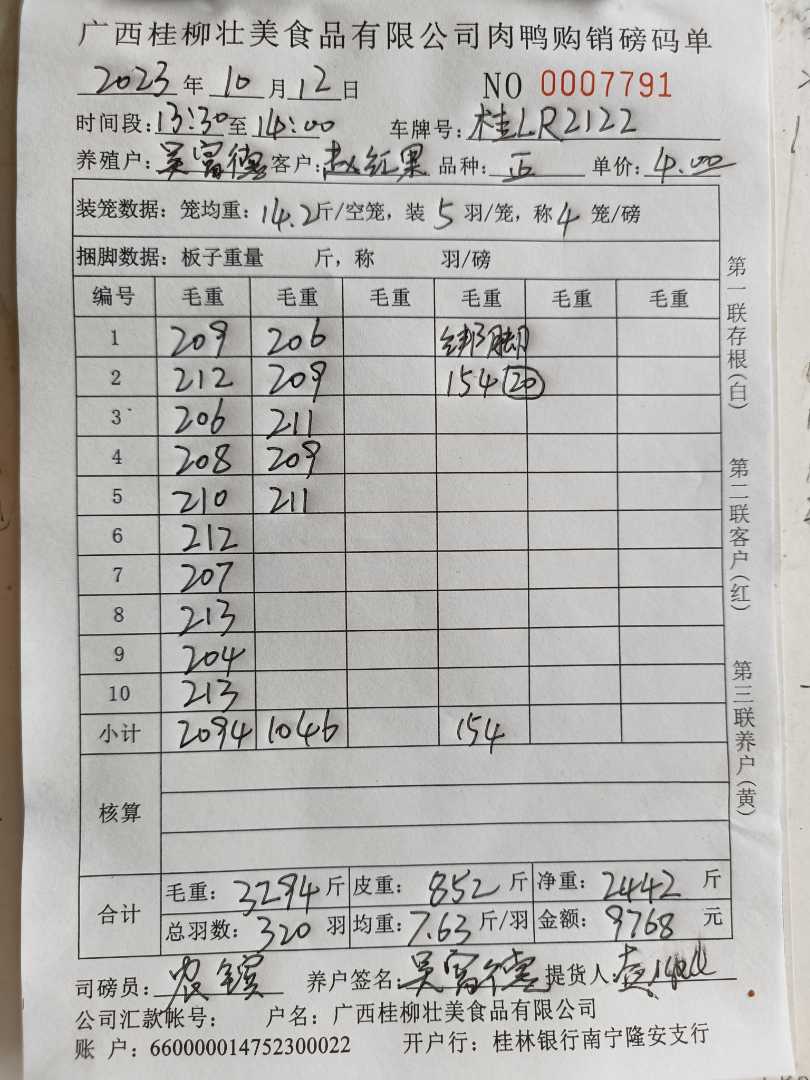 广西桂柳壮美食品有限公司肉鸭购销磅码单
2023年10月12日 NO 0007791
时间段:13:30至14:00 车牌号:桂LR2122
养殖户:吴富德 客户:赵红果 品种:正 单价:4.00
装笼数据:笼均重:14.2斤/空笼，装5羽/笼，称4笼/磅
捆脚数据:板子重量 斤，称 羽/磅
编号 毛重 毛重 毛重 毛重 毛重 毛重
1 209 206 绑脚
2 212 209 154 20
3 206 211
4 208 209
5 210 211
6 212
7 207
8 213
9 204
10 213
小计 2094 1046 154
核算
合计
毛重:3294斤 皮重:852斤 净重:2442斤
总羽数:320羽 均重:7.63斤/羽 金额:9768元
司磅员: 养户签名:吴富德 提货人:
公司汇款帐号: 户名:广西桂柳壮美食品有限公司
账 户:660000014752300022 开户行:桂林银行南宁隆安支行
第一联存根(白)
第二联客户(红)
第三联养户(黄)